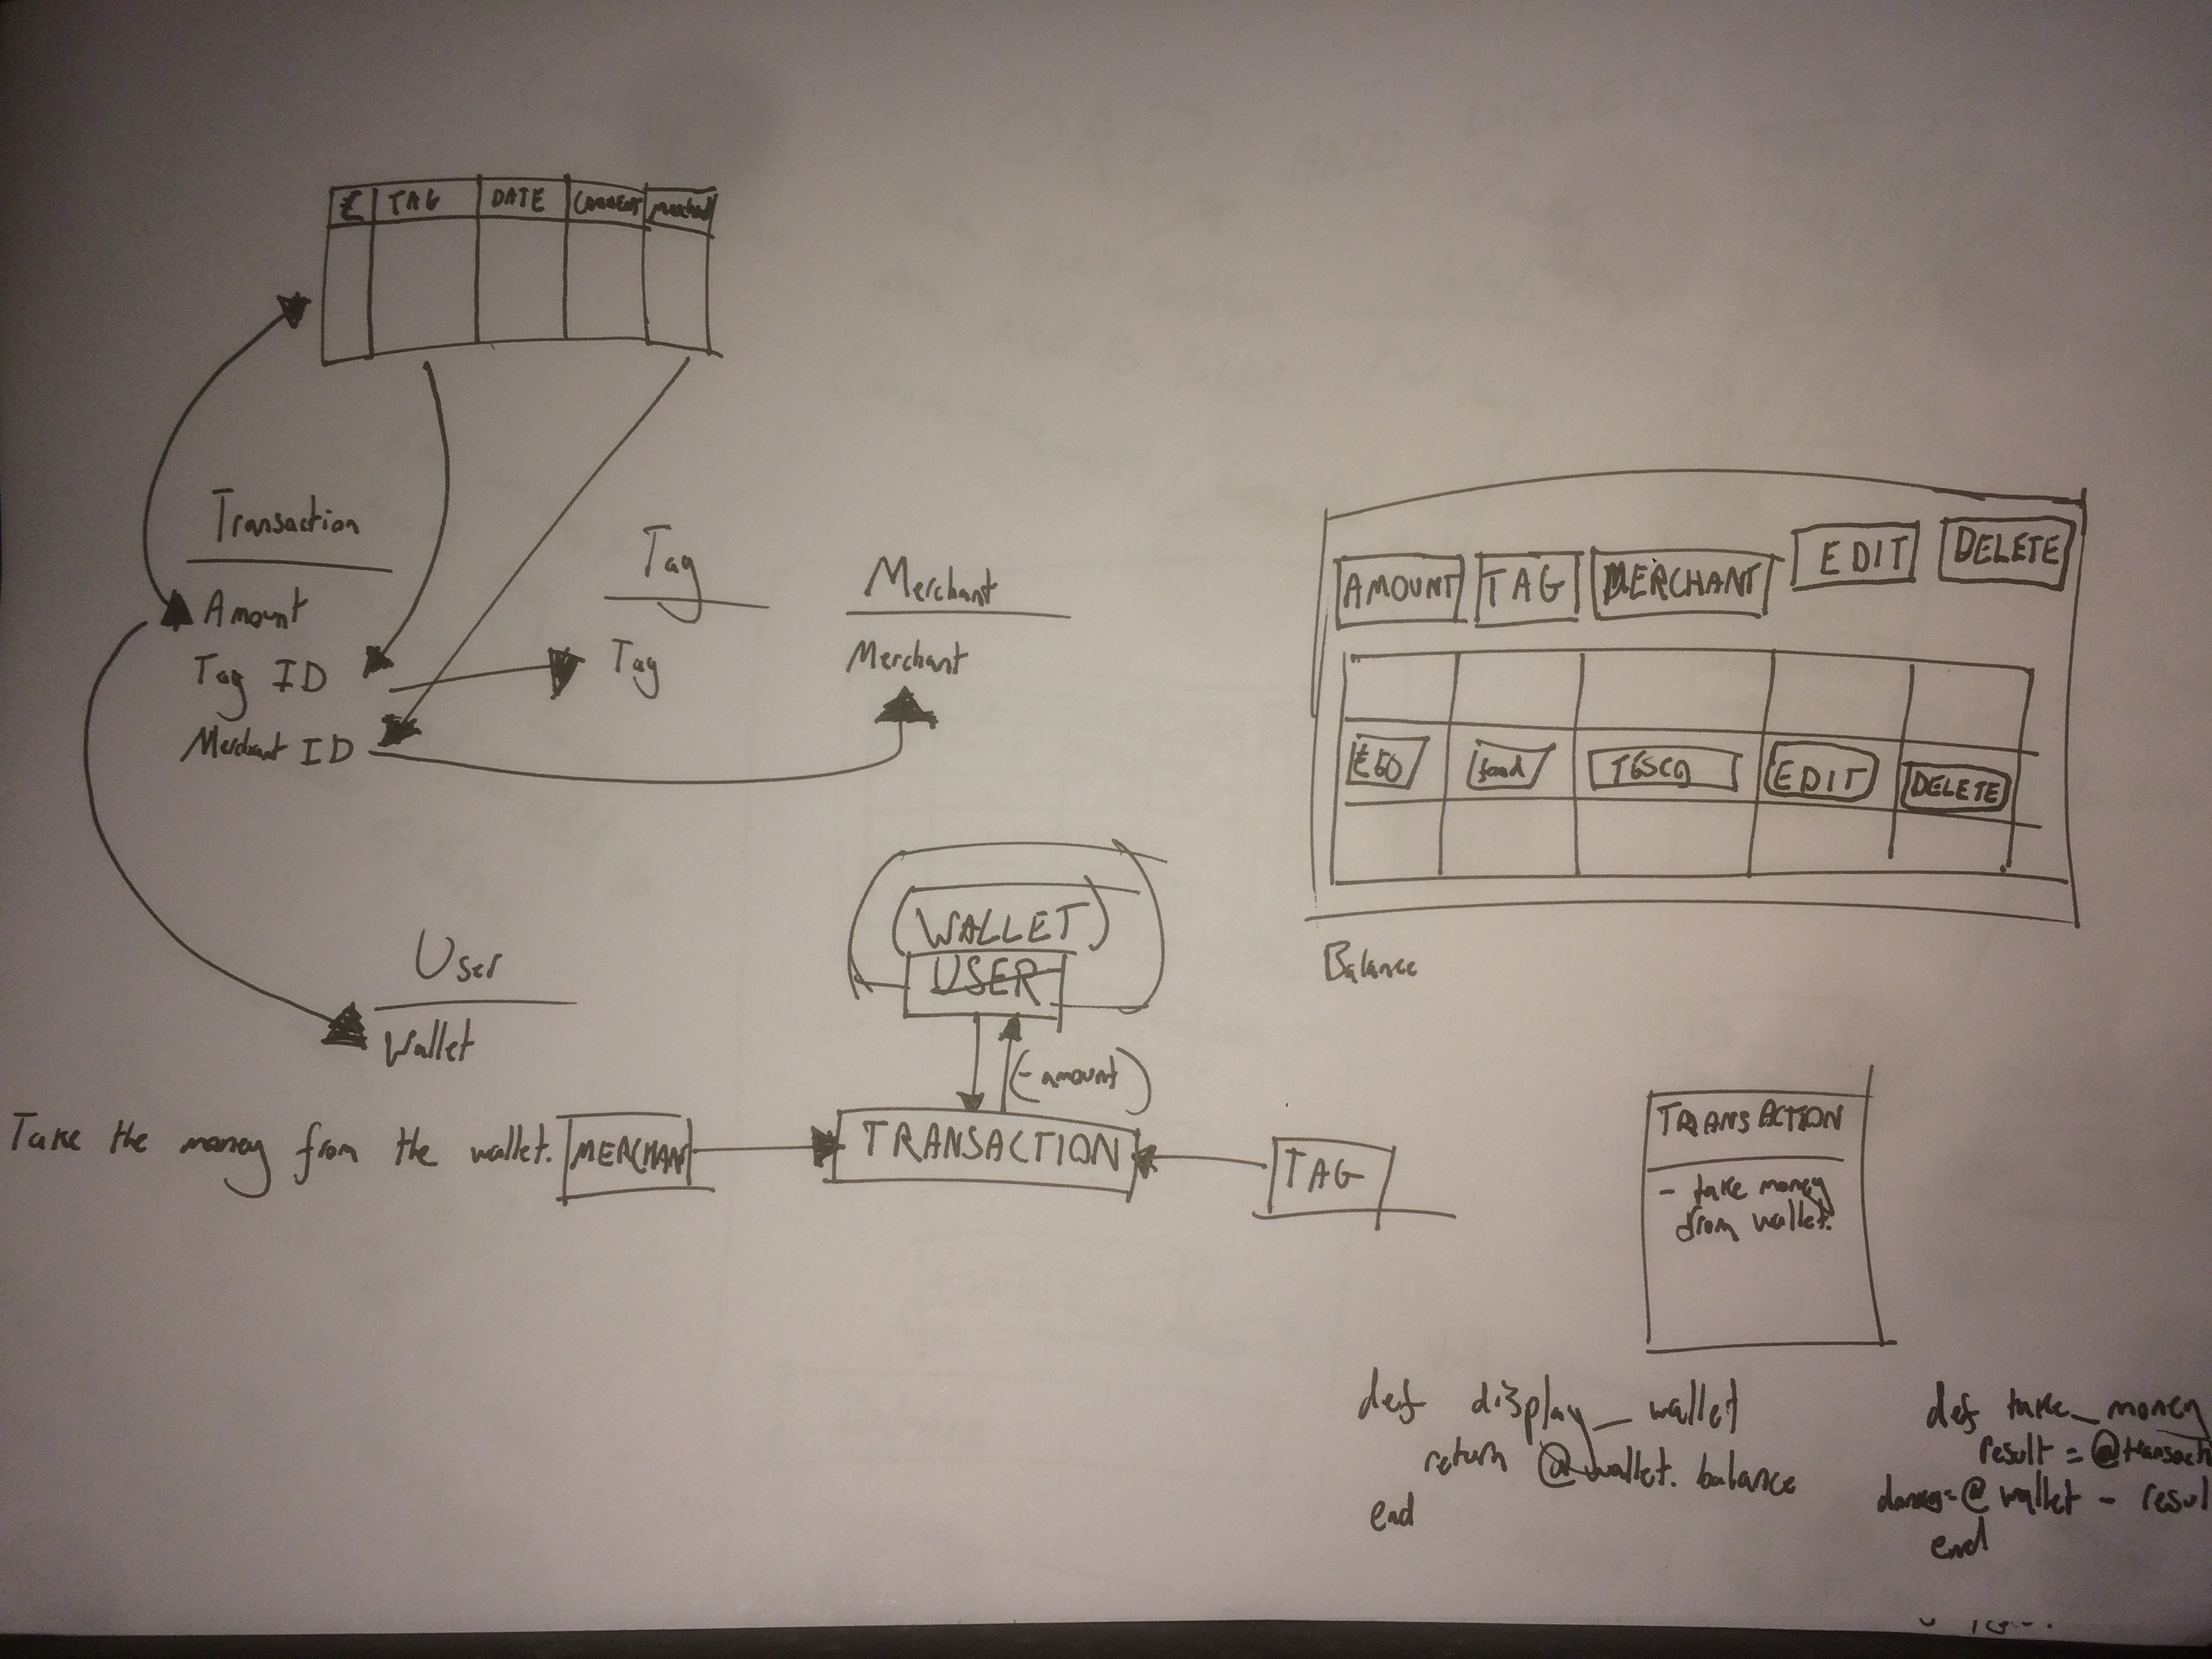 £ TAG DATE COMMENT
Transaction
Amount
Tag ID
Merchant ID
Tag
Tag
Merchant
Merchant
AMOUNT TAG MERCHANT EDIT DELETE
food TESCO EDIT DELETE
Balance
User
Wallet
(WALLET)
USER
(- amount)
Take the money from the wallet.
MERCHANT
TRANSACTION
TAG
TRANSACTION
- take money
from wallet.
def display_wallet
return @wallet.balance
end
def take_money
result = @transacti
@wallet - resul
end